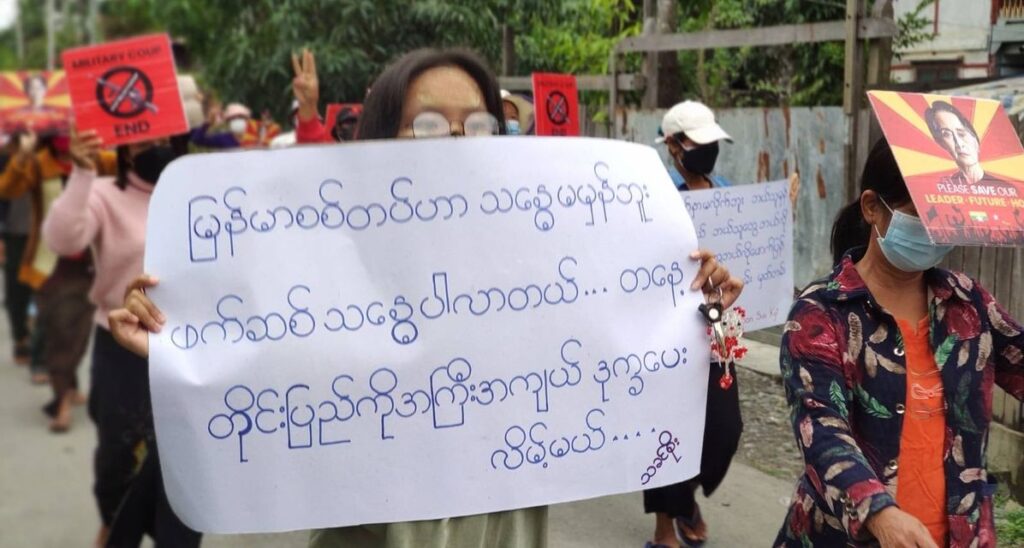 MILITARY COUP
END
မြန်မာစစ်တပ်ဟာ သနွေမမှန်ဘူး
ဖက်ဆစ်သနွေပါလာတယ်... တနေ့
တိုင်းပြည်ကိုအကြီးအကျယ် ဒုက္ခပေး
လိမ့်မယ်....
သခင်စိုး
PLEASE SAVE OUR
LEADER · FUTURE ·